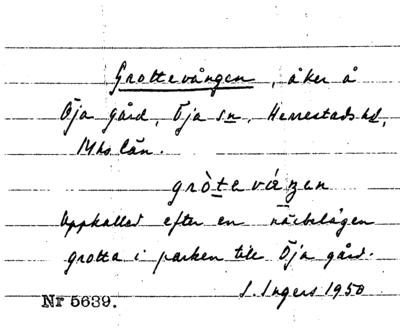 Grottevången, åker å
Öja gård, Öja sn, Herrestads hd,
Mhs län.
gròtevá̱ŋen
Uppkallad efter en närbelägen
grotta i parken till Öja gård.
I. Ingers 1950
Nr 5639.